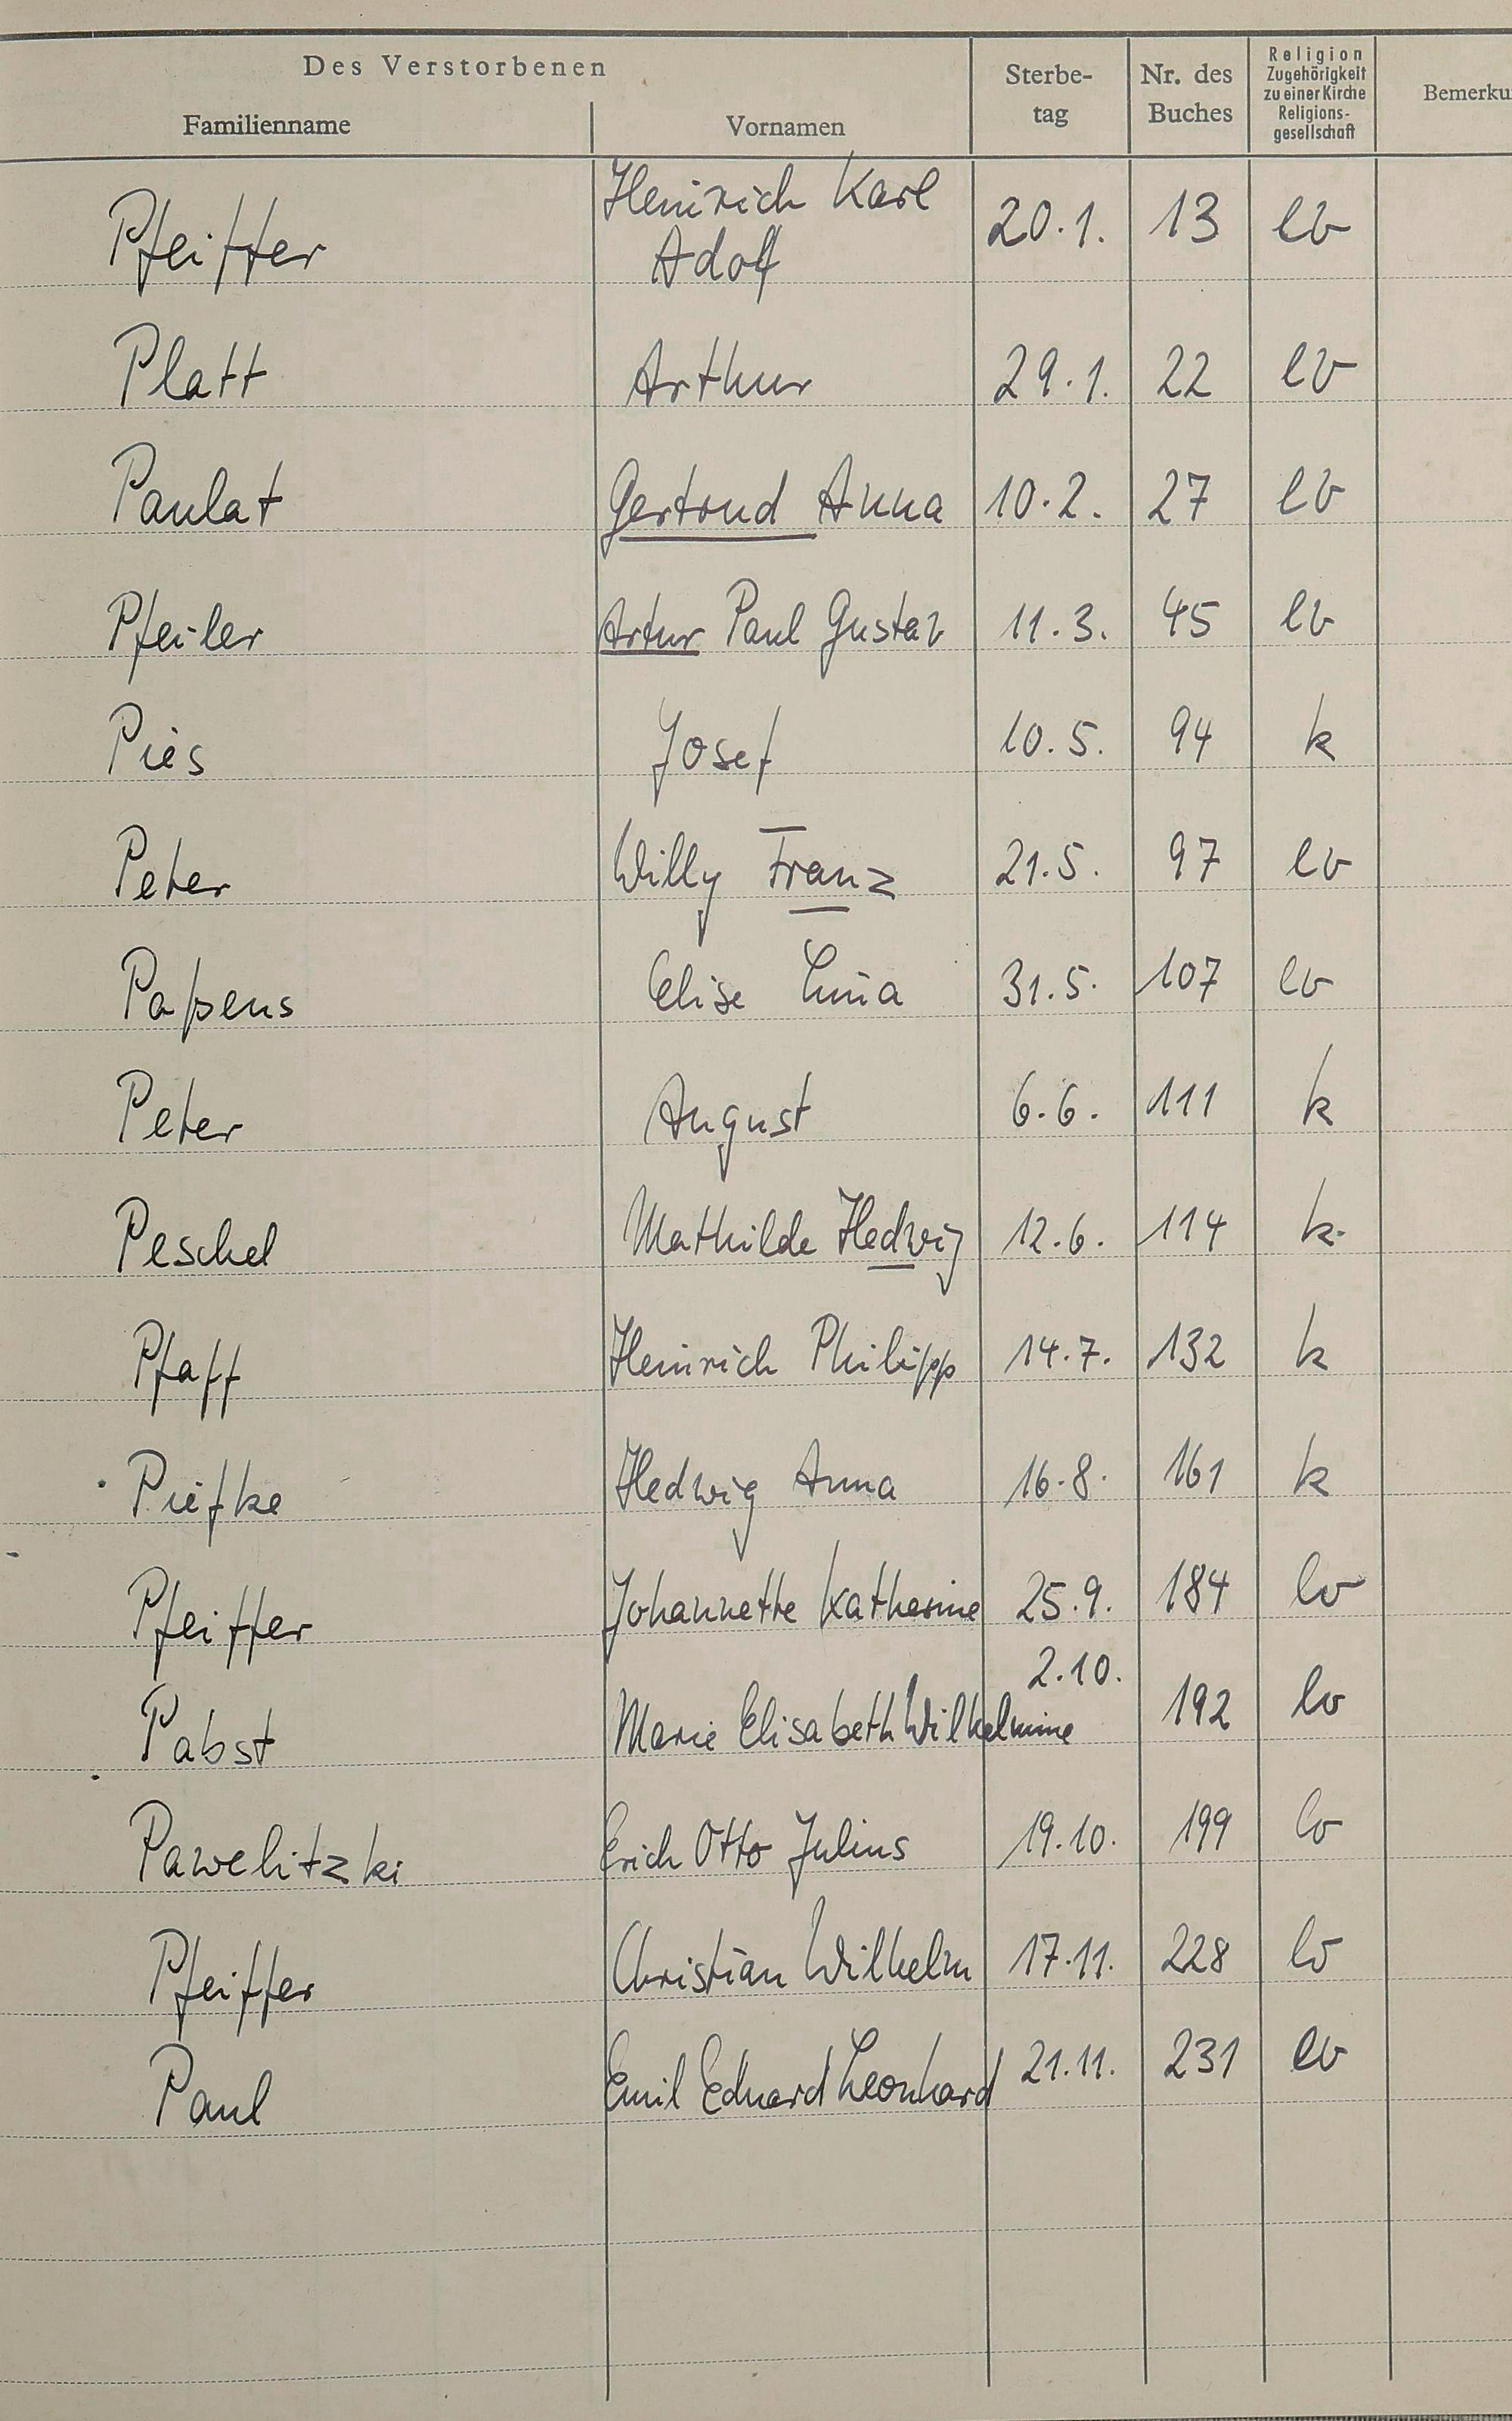 Des Verstorbenen
Familienname
Vornamen
Sterbe-
tag
Nr. des
Buches
Religion
Zugehörigkeit
zu einer Kirche
Religions-
gesellschaft
Bemerku
Pfeiffer Heinrich Karl Adolf 20.1. 13 ev
Platt Arthur 29.1. 22 ev
Paulat Gertrud Anna 10.2. 27 ev
Pfeiler Artur Paul Gustav 11.3. 45 ev
Pies Josef 10.5. 94 k
Peter Willy Franz 21.5. 97 ev
Paßens Elise 31.5. 107 ev
Peter August 6.6. 111 k
Peschel Mathilde Hedwig 12.6. 114 k.
Pfaff Heinrich Philipp 14.7. 132 k
Piefke Hedwig Anna 16.8. 161 k
Pfeiffer Johannette Katharine 25.9. 184 ev
Pabst Marie Elisabeth Wilhelmine 2.10. 192 ev
Pawelitzki Erich Otto Julius 19.10. 199 ev
Pfeiffer Christian Wilhelm 17.11. 228 ev
Paul Emil Eduard Leonhard 21.11. 231 ev